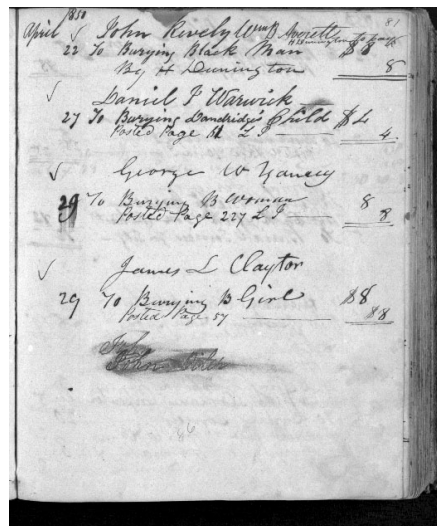 1850 81
April John Rively Wm B Averett
22 To Burying Black Man $8
By H Dunington 8
Daniel P Warwick
27 To Burying Dandridge's Child $4
Posted Page L J 4
George W Yancey
29 To Burying B Woman 8
Posted Page 227 L J 8
James L Claytor
29 To Burying B Girl $8
Posted Page 57 $8
John